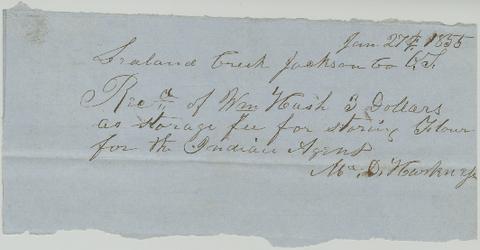 Jan 27th 1855
Creek Jackson Co O.T.
Rec'd of Wm Hush 3 Dollars
as storage fee for storing Flour
for the Indian Agent
D.